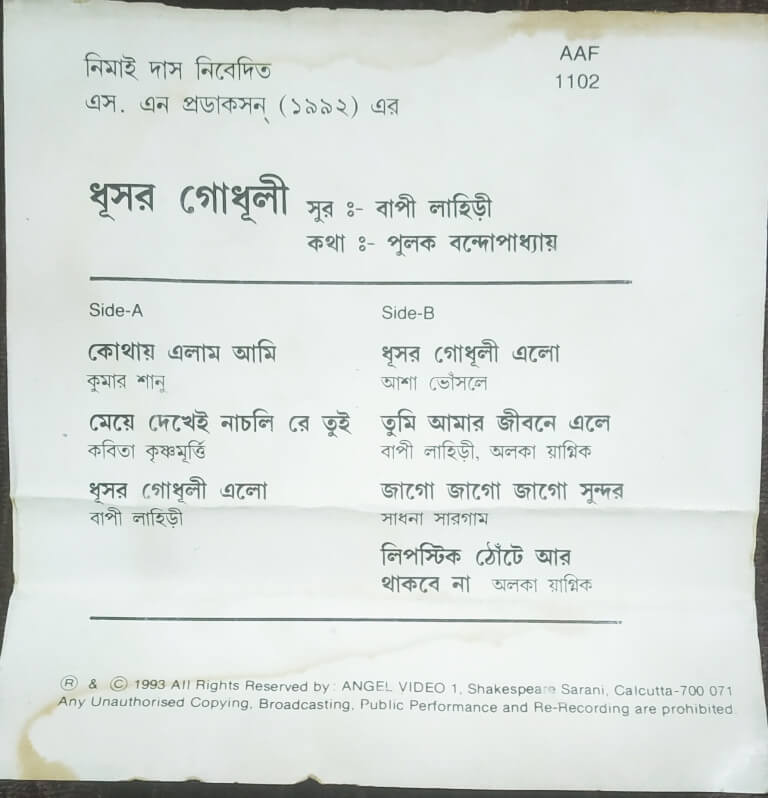 নিমাই দাস নিবেদিত
এস. এন প্রডাকসন্ (১৯৯২) এর
AAF
1102
ধূসর গোধূলী সুর ঃ- বাপী লাহিড়ী
কথা ঃ- পুলক বন্দোপাধ্যায়
Side-A
কোথায় এলাম আমি
কুমার শানু
মেয়ে দেখেই নাচলি রে তুই
কবিতা কৃষ্ণমূর্ত্তি
ধূসর গোধূলী এলো
বাপী লাহিড়ী
Side-B
ধূসর গোধূলী এলো
আশা ভোঁসলে
তুমি আমার জীবনে এলে
বাপী লাহিড়ী, অলকা য়াগ্নিক
জাগো জাগো জাগো সুন্দর
সাধনা সারগাম
লিপস্টিক ঠোঁটে আর
থাকবে না অলকা য়াগ্নিক
Ⓡ & © 1993 All Rights Reserved by : ANGEL VIDEO 1, Shakespeare Sarani, Calcutta-700 071
Any Unauthorised Copying, Broadcasting, Public Performance and Re-Recording are prohibited.